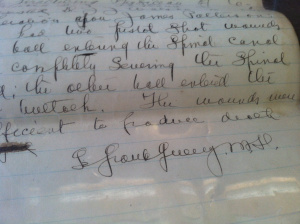 upon James
had two pistol shot wounds
ball entering the Spinal canal
completly severing the Spinal
d; the other ball entered the
buttock. The wounds were
fficient to produce death
M.D.